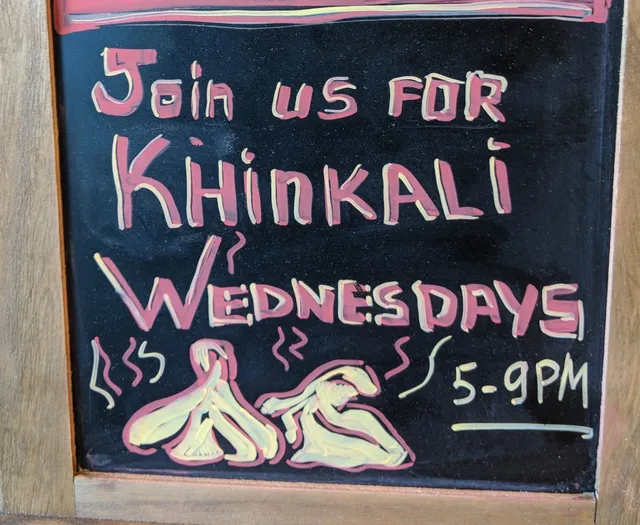 Join us FOR
KHinKALi
WEDNESDAYS
5-9PM